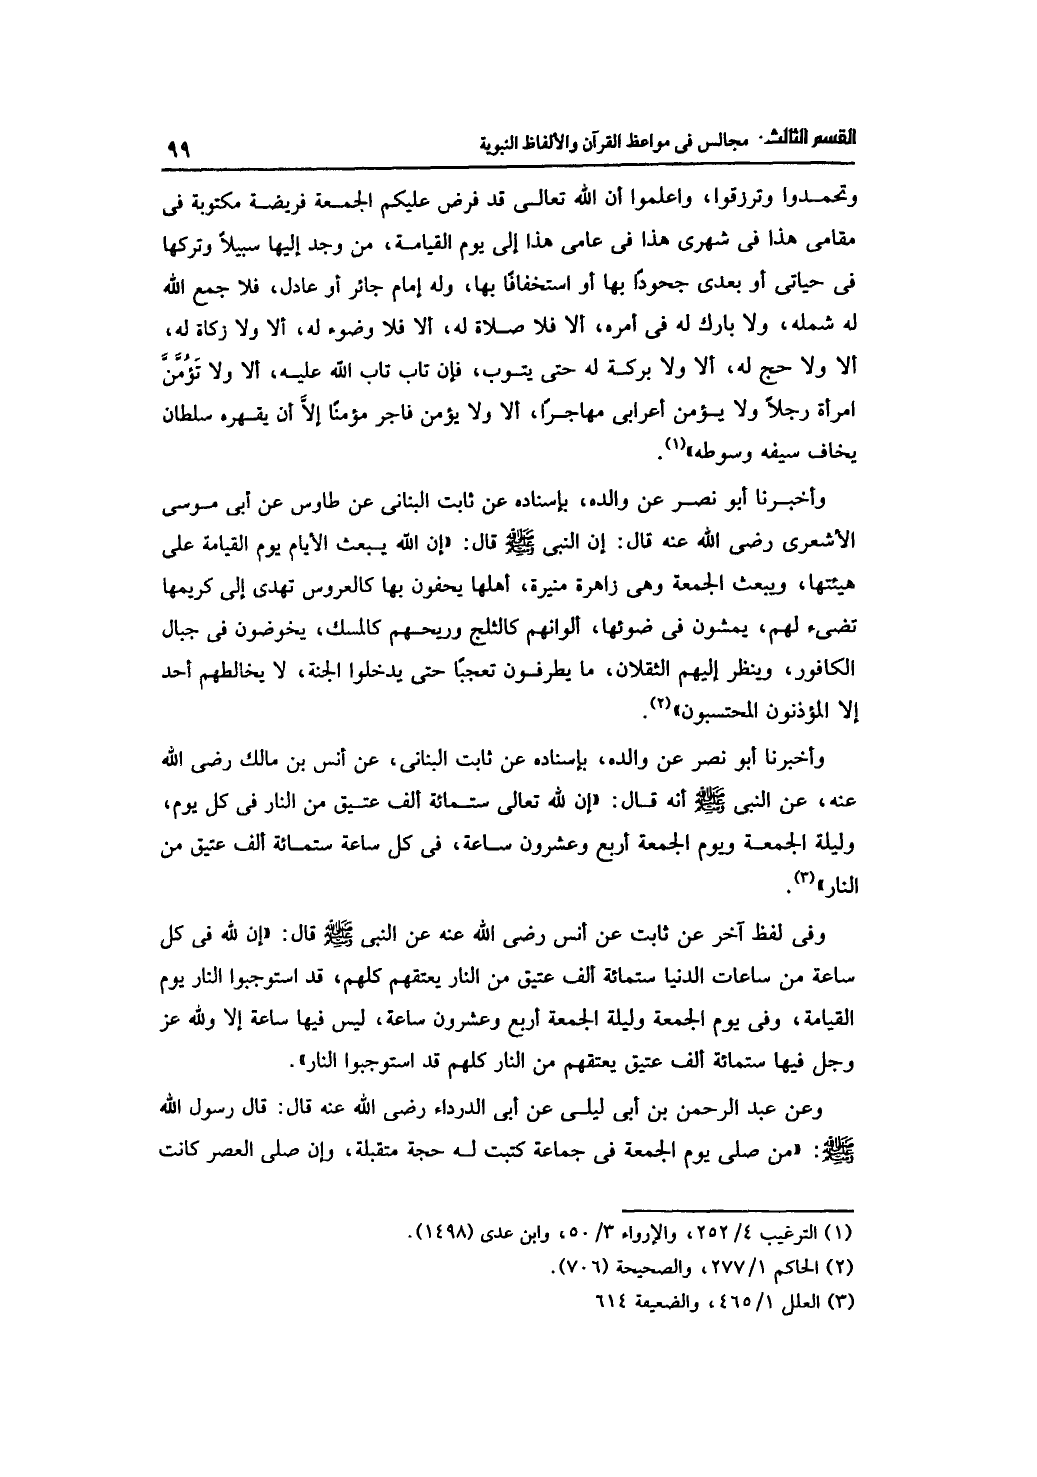 القسم الثالث: مجالس فى مواعظ القرآن والألفاظ النبوية ٩٩
وتحمدوا وترزقوا، واعلموا أن الله تعالى قد فرض عليكم الجمعة فريضة مكتوبة فى
مقامى هذا فى شهرى هذا فى عامى هذا إلى يوم القيامة، من وجد إليها سبيلاً وتركها
فى حياتى أو بعدى جحودًا بها أو استخفافًا بها، وله إمام جائر أو عادل، فلا جمع الله
له شمله، ولا بارك له فى أمره، ألا فلا صلاة له، ألا فلا وضوء له، ألا ولا زكاة له،
ألا ولا حج له، ألا ولا بركة له حتى يتوب، فإن تاب تاب الله عليه، ألا ولا تَؤُمَّنَّ
امرأة رجلاً ولا يؤمن أعرابى مهاجرًا، ألا ولا يؤمن فاجر مؤمنًا إلاَّ أن يقهره سلطان
يخاف سيفه وسوطه»(١).
وأخبرنا أبو نصر عن والده، بإسناده عن ثابت البنانى عن طاوس عن أبى موسى
الأشعرى رضى الله عنه قال: إن النبى ﷺ قال: «إن الله يبعث الأيام يوم القيامة على
هيئتها، ويبعث الجمعة وهى زاهرة منيرة، أهلها يحفون بها كالعروس تهدى إلى كريمها
تضىء لهم، يمشون فى ضوئها، ألوانهم كالثلج وريحهم كالمسك، يخوضون فى جبال
الكافور، وينظر إليهم الثقلان، ما يطرفون تعجبًا حتى يدخلوا الجنة، لا يخالطهم أحد
إلا المؤذنون المحتسبون»(٢).
وأخبرنا أبو نصر عن والده، بإسناده عن ثابت البنانى، عن أنس بن مالك رضى الله
عنه، عن النبى ﷺ أنه قال: «إن لله تعالى ستمائة ألف عتيق من النار فى كل يوم،
وليلة الجمعة ويوم الجمعة أربع وعشرون ساعة، فى كل ساعة ستمائة ألف عتيق من
النار»(٣).
وفى لفظ آخر عن ثابت عن أنس رضى الله عنه عن النبى ﷺ قال: «إن لله فى كل
ساعة من ساعات الدنيا ستمائة ألف عتيق من النار يعتقهم كلهم، قد استوجبوا النار يوم
القيامة، وفى يوم الجمعة وليلة الجمعة أربع وعشرون ساعة، ليس فيها ساعة إلا ولله عز
وجل فيها ستمائة ألف عتيق يعتقهم من النار كلهم قد استوجبوا النار».
وعن عبد الرحمن بن أبى ليلى عن أبى الدرداء رضى الله عنه قال: قال رسول الله
ﷺ: «من صلى يوم الجمعة فى جماعة كتبت له حجة متقبلة، وإن صلى العصر كانت
(١) الترغيب ٤/ ٢٥٢، والإرواء ٣/ ٥٠، وابن عدى (١٤٩٨).
(٢) الحاكم ١/ ٢٧٧، والصحيحة (٧٠٦).
(٣) العلل ١/ ٤٦٥، والضعيفة ٦١٤